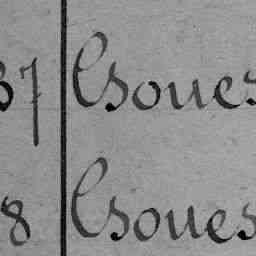 37 Csoues
8 Csoues